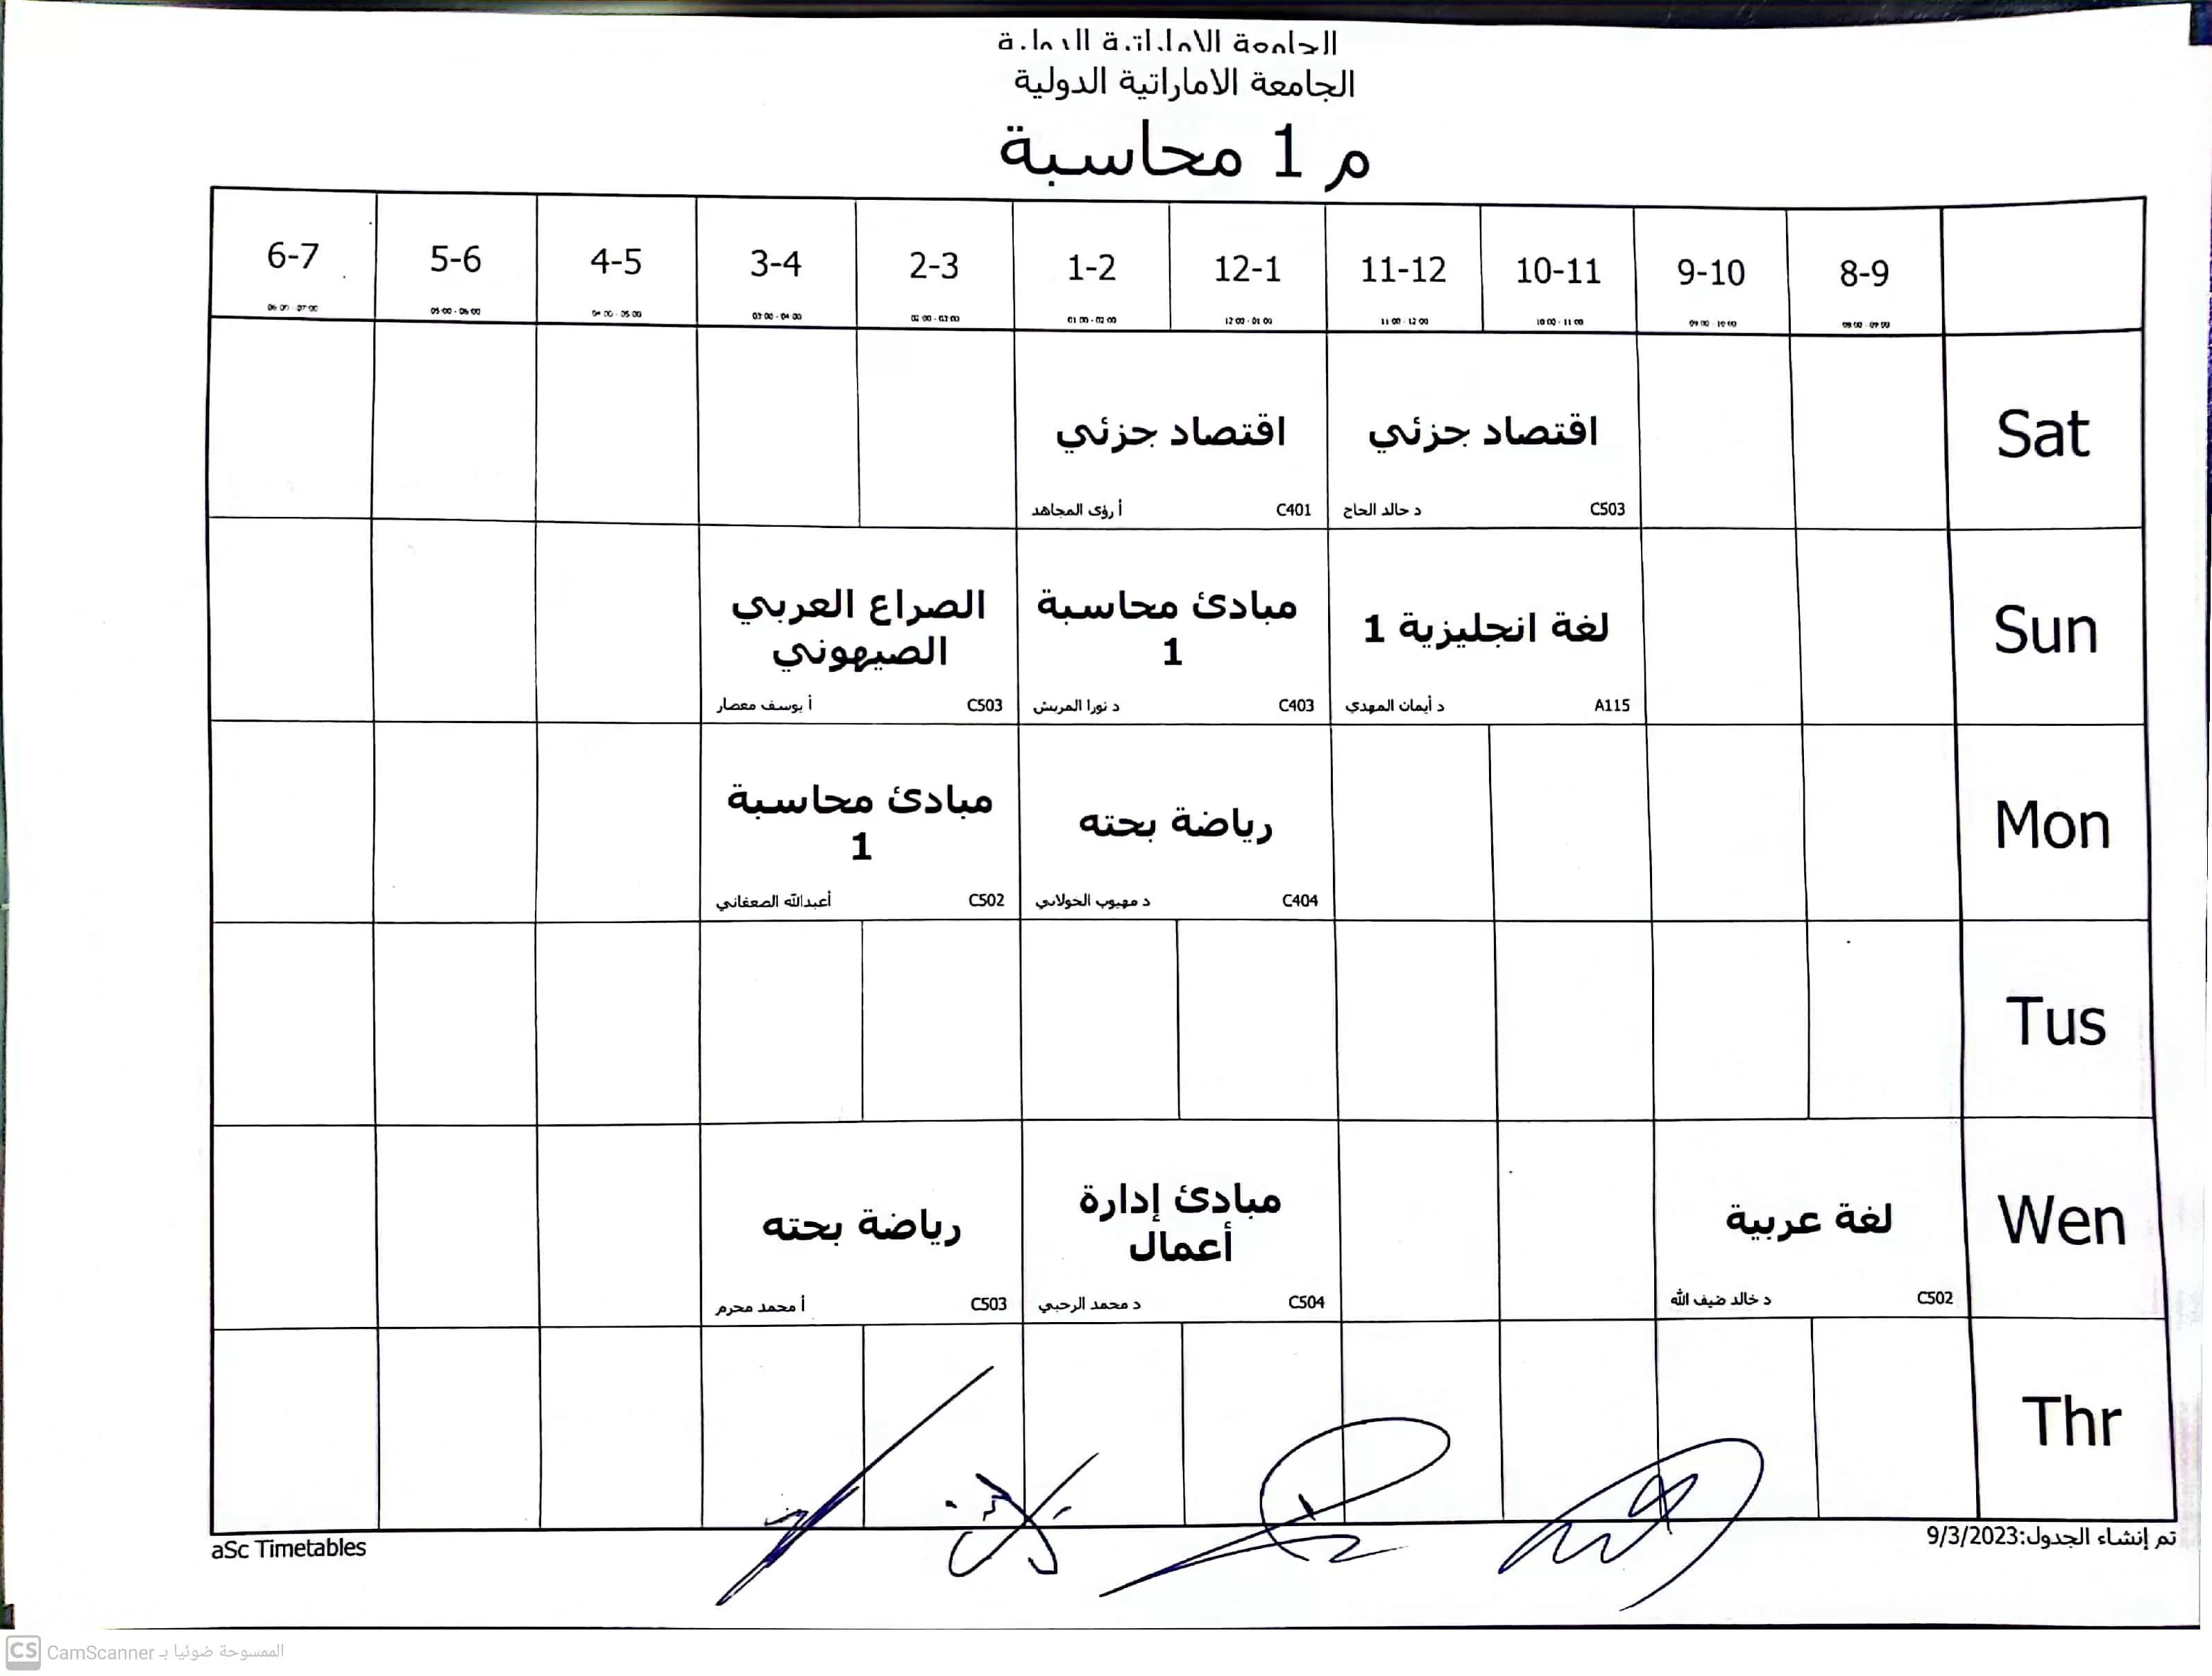 الجامعة الاماراتية الدولية
الجامعة الاماراتية الدولية
م 1 محاسبة
8-9 9-10 10-11 11-12 12-1 1-2 2-3 3-4 4-5 5-6 6-7
08:00 - 09:00 09:00 - 10:00 10:00 - 11:00 11:00 - 12:00 12:00 - 01:00 01:00 - 02:00 02:00 - 03:00 03:00 - 04:00 04:00 - 05:00 05:00 - 06:00 06:00 - 07:00
Sat
اقتصاد جزئي
C503 د خالد الحاج
اقتصاد جزئي
C401 أ رؤى المجاهد
Sun
لغة انجليزية 1
A115 د أيمان المهدي
مبادئ محاسبة
1
C403 د نورا المريش
الصراع العربي
الصيهوني
C503 أ يوسف معصار
Mon
رياضة بحته
C404 د مهيوب الخولاني
مبادئ محاسبة
1
C502 أعبدالله الصعفاني
Tus
Wen
لغة عربية
C502 د خالد ضيف الله
مبادئ إدارة
أعمال
C504 د محمد الرحبي
رياضة بحته
C503 أ محمد محرم
Thr
تم إنشاء الجدول:9/3/2023
aSc Timetables
CS الممسوحة ضوئيا بـ CamScanner